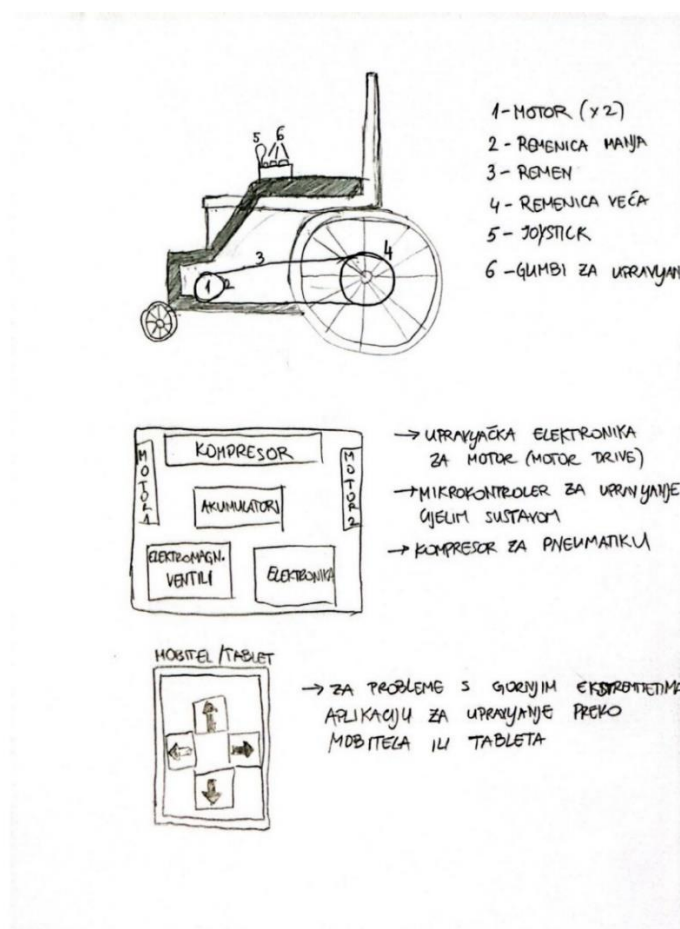 5 6
1 2
3
4
1-MOTOR (x2)
2 - REMENICA MANJA
3 - REMEN
4 - REMENICA VEĆA
5 - JOYSTICK
6 - GUMBI ZA UPRAVLJAN
MOTOR 1
KOMPRESOR
MOTOR 2
AKUMULATORI
ELEKTROMAGN.
VENTILI
ELEKTRONIKA
→ UPRAVLJAČKA ELEKTRONIKA
ZA MOTOR (MOTOR DRIVE)
→ MIKROKONTROLER ZA UPRAVLJANJE
CIJELIM SUSTAVOM
→ KOMPRESOR ZA PNEUMATIKU
MOBITEL / TABLET
→ ZA PROBLEME S GORNJIM EKSTREMITETIMA
APLIKACIJU ZA UPRAVLJANJE PREKO
MOBITELA ILI TABLETA